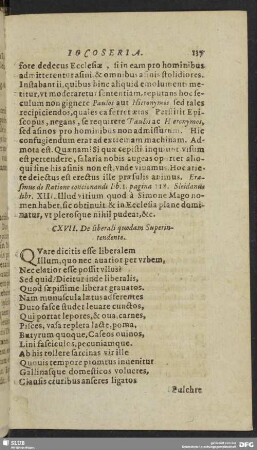 IOCOSERIA. 137
fore dedecus Ecclesiæ, si in eam pro hominibus
admitterentur asini, & omnibus asinis stolidiores.
Instabant ii, quibus hinc aliquid emolumenti me-
titur, vt moderaretur sententiam, reputans hoc se-
culum non gignere Paulos aut Hieronymos sed tales
recipiendos, quales ea ferret ætas. Perstitit Epi-
scopus, negans, se requirere Paulos aut Hieronymos,
sed asinos pro hominibus non admissurum. Hic
confugiendum erat ad extremam machinam. Ad-
mota est. Quænam? Si qua cepisti inquiunt visum
est pertendere, salaria nobis augeas oportet alio-
qui sine his asinis non est, vnde viuamus. Hoc arie-
te deiectus est erectus ille præsulis animus. Eras-
mus de Ratione concionandi lib. 1. pagina 118. Sleidanus
libr. XII. Illud vitium quod à Simone Mago no-
men habet, sic obtinuit & in Ecclesia plane domi-
natur, vt plerosque nihil pudeat, &c.
CXVII. De liberali quodam Superin-
tendente.
QVare dicitis esse liberalem
Illum, quo nec auarior per vrbem,
Nec elatior esse possit vllus?
Sed quid? Dicitur inde liberalis,
Quod sæpissime liberat grauatos.
Nam munuscula lætus adferentes
Duro fasce studet leuare cunctos,
Qui portat lepores, & oua, carnes,
Pisces, vasa replera lacte, poma,
Butyrum quoque, Caseos ouinos,
Lini fasciculos, pecuniamque.
Ab his tollere sarcinas vir ille
Quouis tempore promtus inuenitur
Gallinasque domesticos volucres,
Clausis cruribus anseres ligatos
Pulchre
SLUB